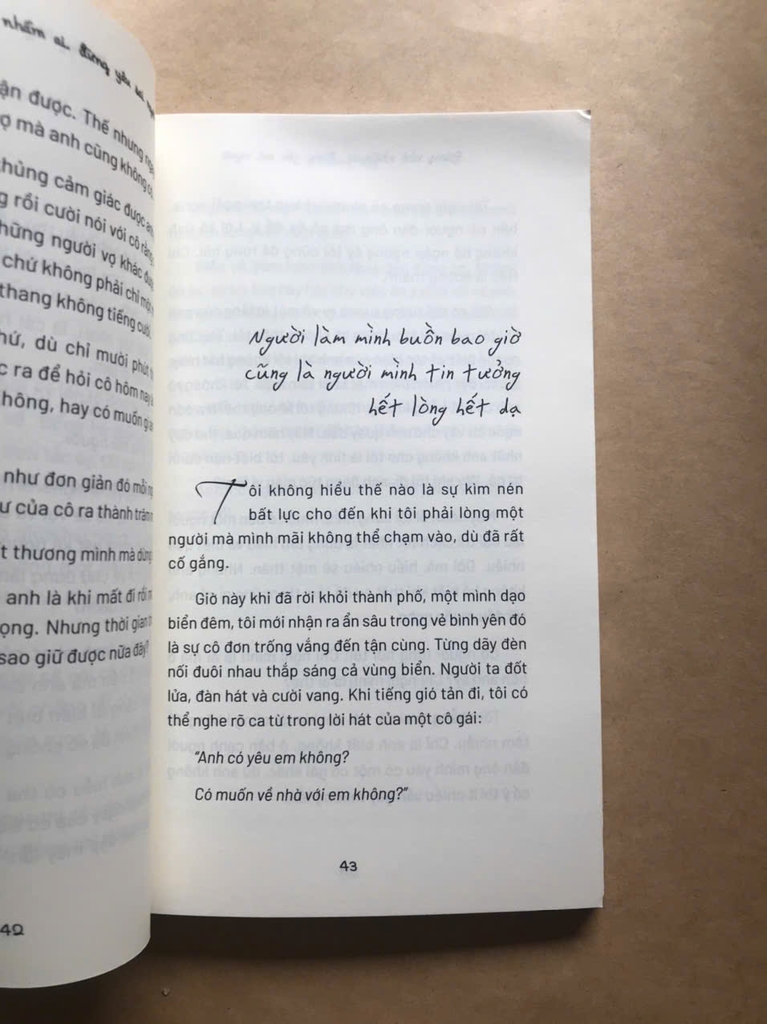 nhầm ai, đừng yêu
ận được. Thế nhưng
ợ mà anh cũng không
hùng cảm giác được
g rồi cười nói với cô rằng
hững người vợ khác
chứ không phải chỉ
thang không tiếng cười.
hứ, dù chỉ mười phút
c ra để hỏi cô hôm nay
hông, hay có muốn
như đơn giản đó mỗi
ư của cô ra thành
t thương mình mà
anh là khi mất đi rồi
ọng. Nhưng thời gian
sao giữ được nữa đây?
42
Người làm mình buồn bao giờ
cũng là người mình tin tưởng
hết lòng hết dạ
Tôi không hiểu thế nào là sự kìm nén
bất lực cho đến khi tôi phải lòng một
người mà mình mãi không thể chạm vào, dù đã rất
cố gắng.
Giờ này khi đã rời khỏi thành phố, một mình dạo
biển đêm, tôi mới nhận ra ẩn sâu trong vẻ bình yên đó
là sự cô đơn trống vắng đến tận cùng. Từng dãy đèn
nối đuôi nhau thắp sáng cả vùng biển. Người ta đốt
lửa, đàn hát và cười vang. Khi tiếng gió tản đi, tôi có
thể nghe rõ ca từ trong lời hát của một cô gái:
"Anh có yêu em không?
Có muốn về nhà với em không?"
43